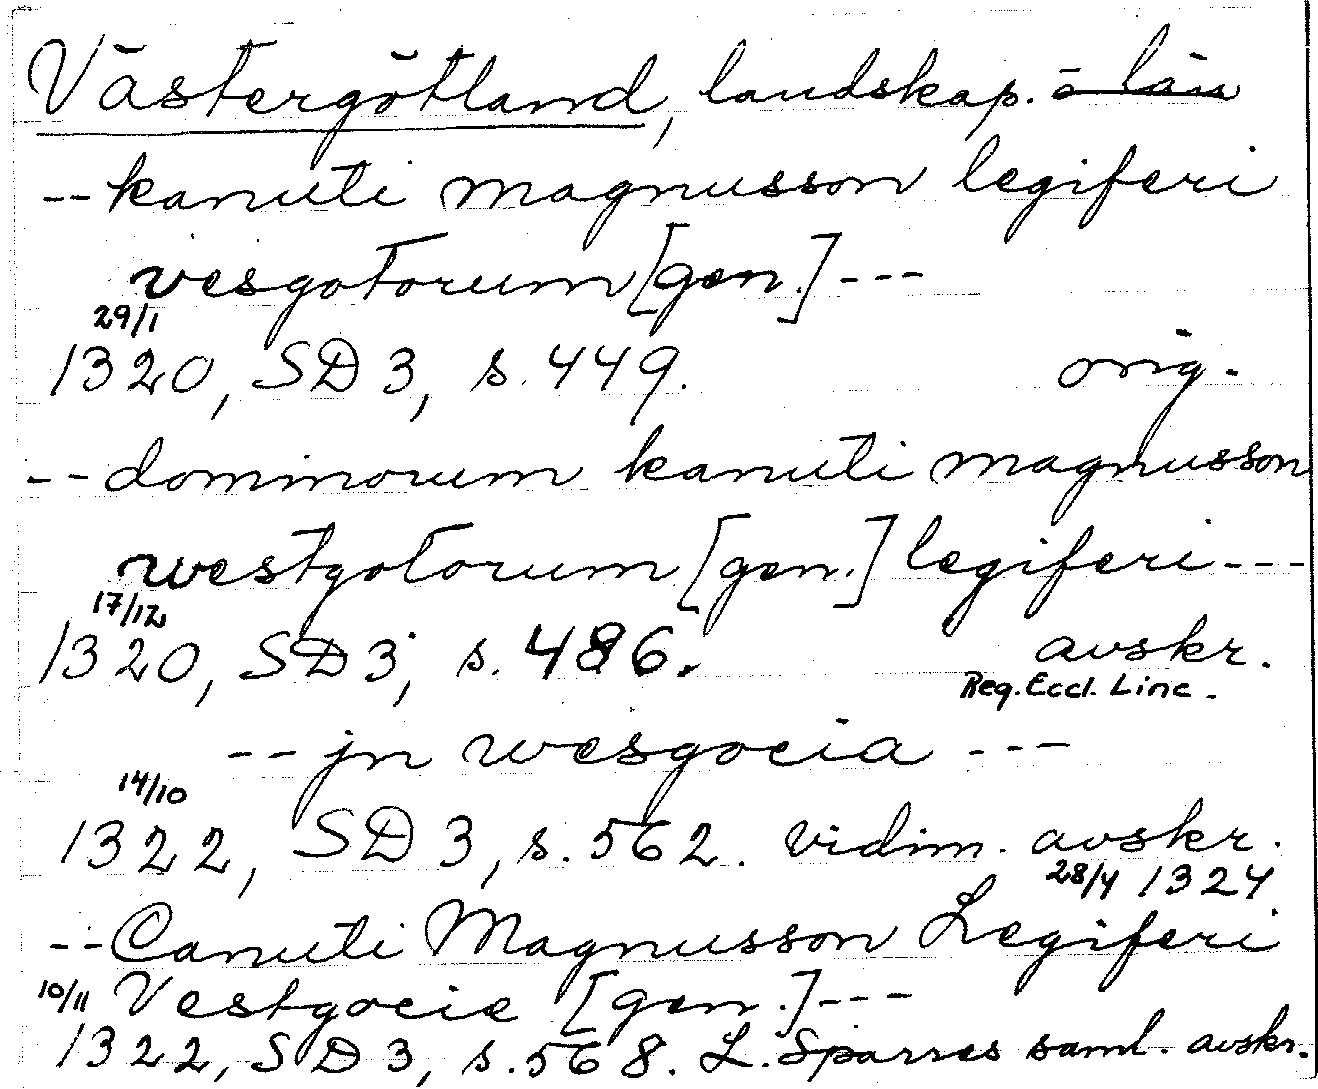 Västergötland, landskap. ~~o län~~
-- kanuti magnusson legiferi
vesgotorum [gen.] ---
29/1
1320, SD 3, s. 449. orig.
-- dominorum kanuti magnusson
westgotorum [gen.] legiferi ---
17/12
1320, SD 3, s. 486. avskr.
Reg. Eccl. Linc.
-- jn wesgocia ---
14/10
1322, SD 3, s. 562. vidim. avskr.
28/4 1324
-- Canuti Magnusson Legiferi
10/11 Vestgocie [gen.] ---
1322, SD 3, s. 568. L. Sparres saml. avskr.